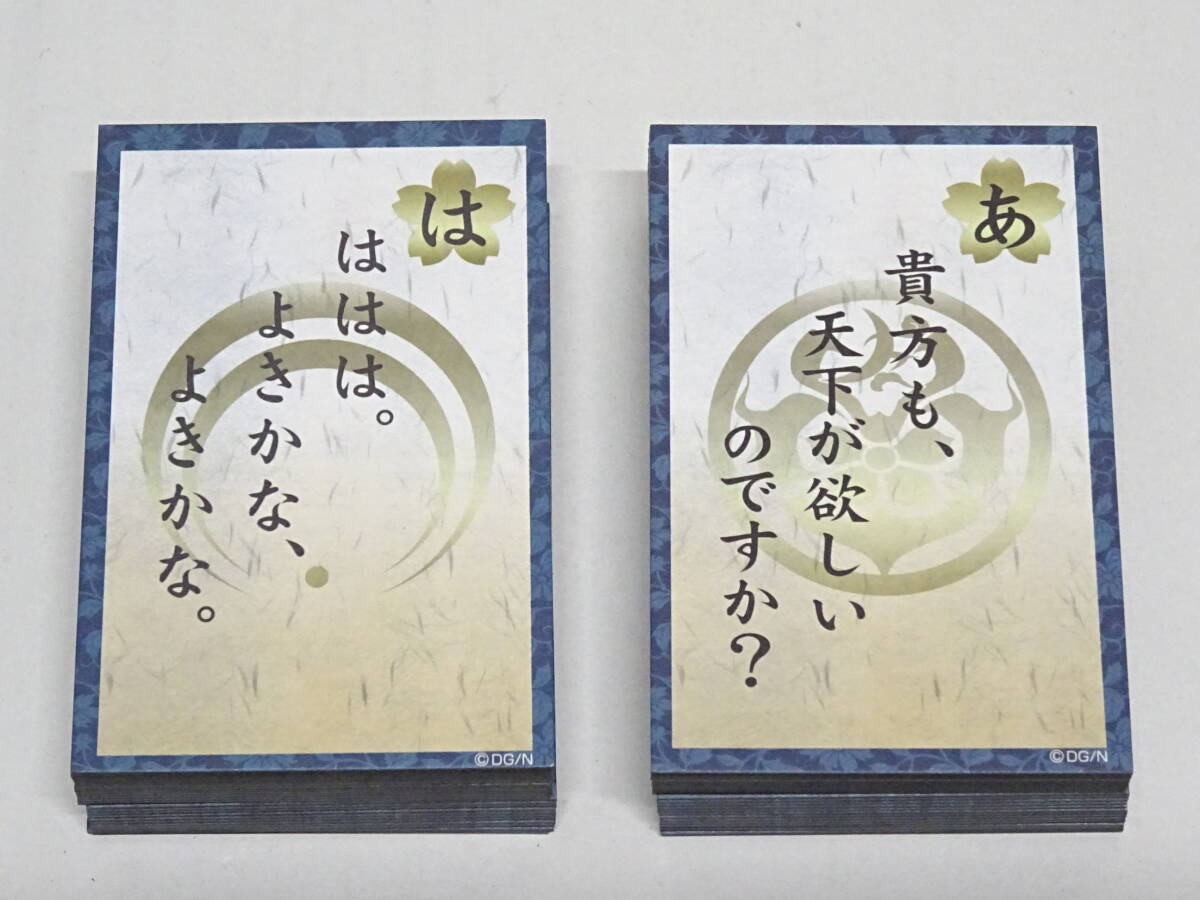 は
ははは。
よきかな、
よきかな。
©DG/N
あ
貴方も、
天下が欲しい
のですか?
©DG/N